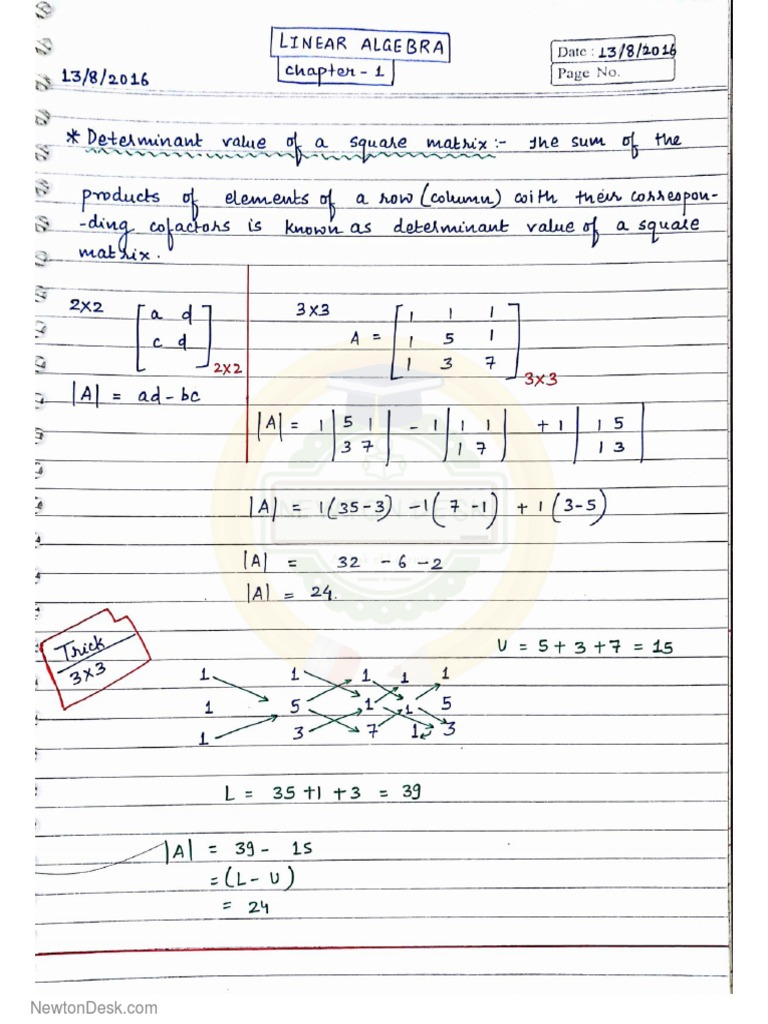 LINEAR ALGEBRA
Chapter - 1
Date : 13/8/2016
Page No.
13/8/2016
* Determinant value of a square matrix :- the sum of the
products of elements of a row (column) with their correspon-
-ding cofactors is known as determinant value of a square
matrix.
2x2
[a d
c d] 2x2
|A| = ad - bc
3x3
A = [1 1 1
1 5 1
1 3 7] 3x3
|A| = 1 |5 1| - 1 |1 1| + 1 |1 5|
|3 7| |1 7| |1 3|
|A| = 1(35-3) -1(7-1) + 1(3-5)
|A| = 32 - 6 - 2
|A| = 24.
NEWTON DESK
Trick
3x3
U = 5 + 3 + 7 = 15
1 1 1 1 1
1 5 1 1 5
1 3 7 1 3
L = 35 + 1 + 3 = 39
|A| = 39 - 15
= (L - U)
= 24
NewtonDesk.com